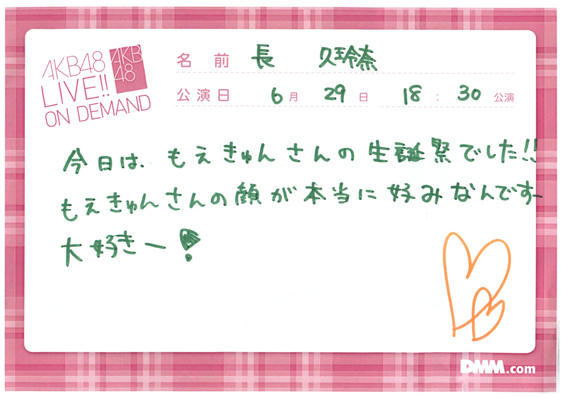 AKB48
LIVE!!
ON DEMAND
AKB
48
名前 長 久玲奈
公演日 6月 29日 18:30 公演
今日は、もえきゅんさんの生誕祭でした!!
もえきゅんさんの顔が本当に好みなんですー
大好きー!
DMM.com